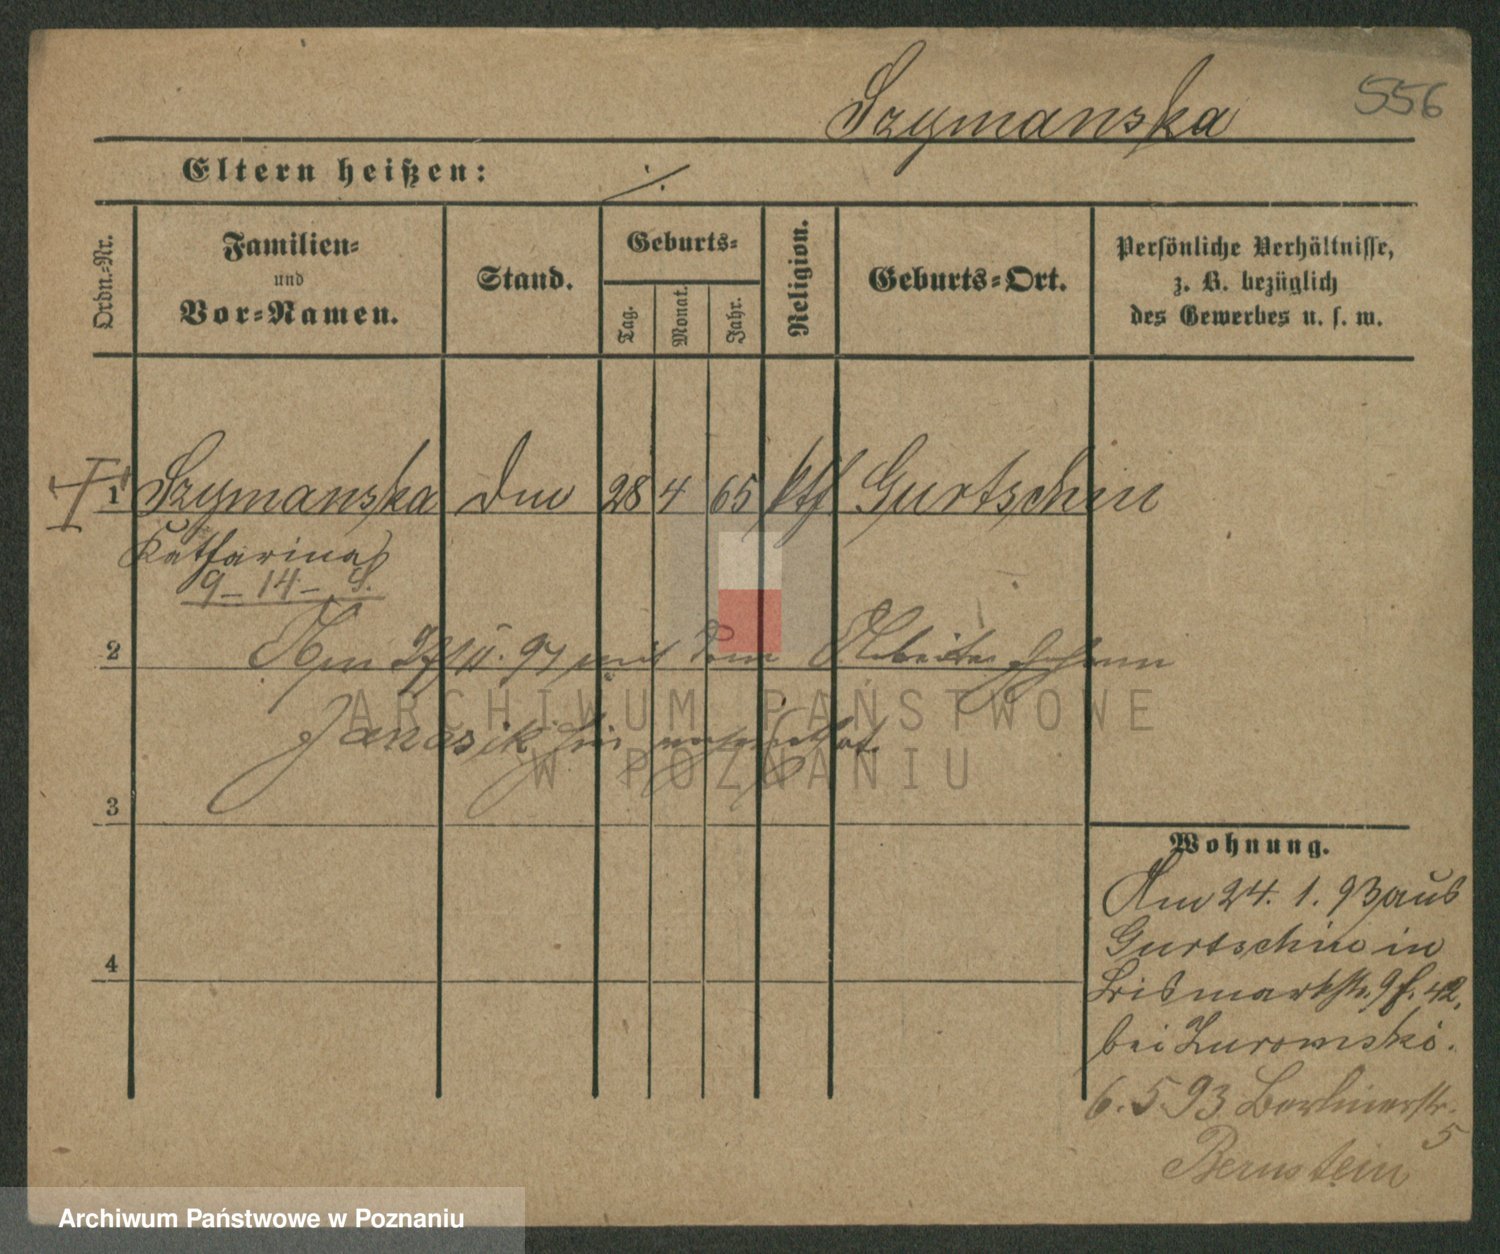 556
Szymanska
Eltern heißen: ./.
Ordn.-Nr.
Familien-
und
Vor-Namen.
Stand.
Geburts-
Tag.
Monat.
Jahr.
Religion.
Geburts-Ort.
Persönliche Verhältnisse,
z. B. bezüglich
des Gewerbes u. s. w.
1 Szymanska 28 4 65 kth Gurtschin
Katharina
9-14-
2 Am II. 97 mit dem Arbeiter Johann
Janasik hier verheirathet.
3
4
Wohnung.
Am 24. 1. 93 aus
Gurtschin in
Bismarkstr. 9 42.
bei Zurowski.
6. 5 93 Berlinerstr.
5
Bernstein
ARCHIWUM PAŃSTWOWE
W POZNANIU
Archiwum Państwowe w Poznaniu